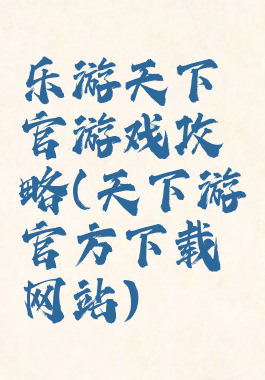 乐游天下
官游戏攻
略(天下游
官方下载
网站)